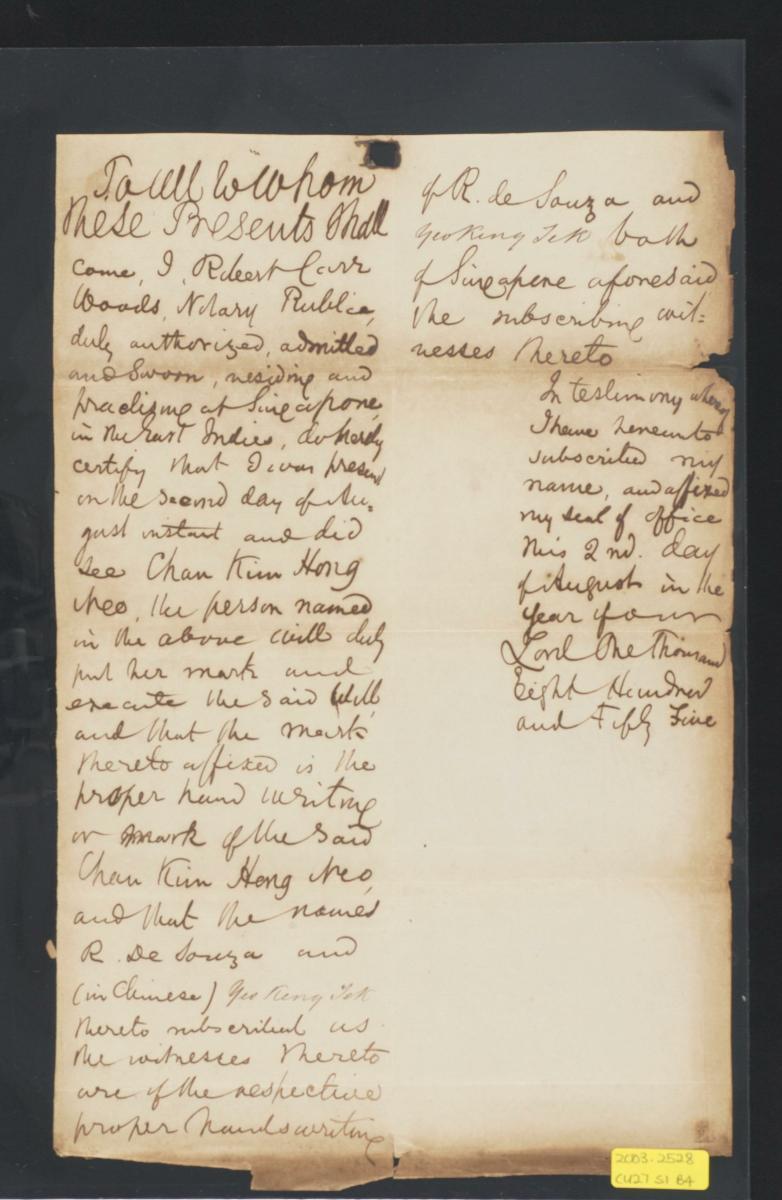 To All to Whom
these Presents Shall
come, I, Robert Carr
Woods, Notary Public,
duly authorized, admitted
and Sworn, residing and
practising at Singapore,
in the East Indies, do hereby
certify that I was present
on the second day of Au=
gust instant and did
see Chan Kim Hong
Neo, the person named
in the above will duly
put her mark and
execute the said Will,
and that the mark
thereto affixed is the
proper hand writing
or mark of the said
Chan Kim Hong Neo,
and that the names
R. De Souza and
(in Chinese) Yeo King Tek
thereto subscribed as
the witnesses thereto
are of the respective
proper handswriting
of R. de Souza and
Yeo King Tek both
of Singapore aforesaid
the subscribing wit=
nesses thereto
In testimony whereof
I have hereunto
subscribed my
name, and affixed
my seal of office
this 2nd. day
of August in the
year of our
Lord One Thousand
Eight Hundred
and Fifty Five
2003-2528